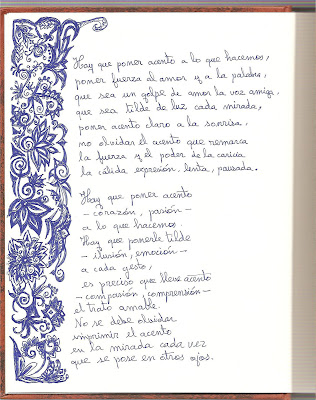 Hay que poner acento a lo que hacemos,
poner fuerza al amor y a la palabra,
que sea un golpe de amor la voz amiga,
que sea tilde de luz cada mirada,
poner acento claro a la sonrisa,
no olvidar el acento que remarca
la fuerza y el poder de la caricia
la cálida expresión, lenta, pausada.
Hay que poner acento
- corazón, pasión -
a lo que hacemos.
Hay que ponerle tilde
- ilusión, emoción -
a cada gesto,
es preciso que lleve acento
- compasión, comprensión -
el trato amable.
No se debe olvidar
imprimir el acento
en la mirada cada vez
que se pose en otros ojos.